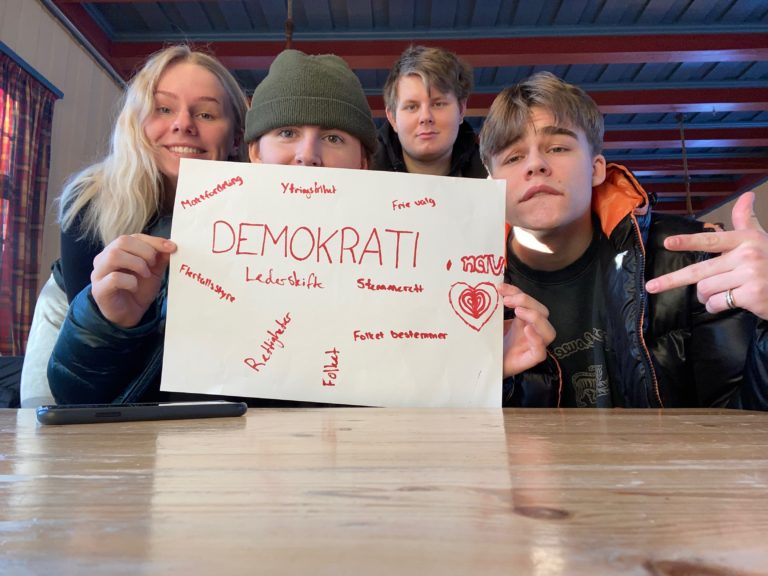 Maktfordeling
Ytringsfrihet
Frie valg
DEMOKRATI
Flerfallsstyre
Lederskifte
Stemmerett
Rettigheter
Folket
Folket bestemmer